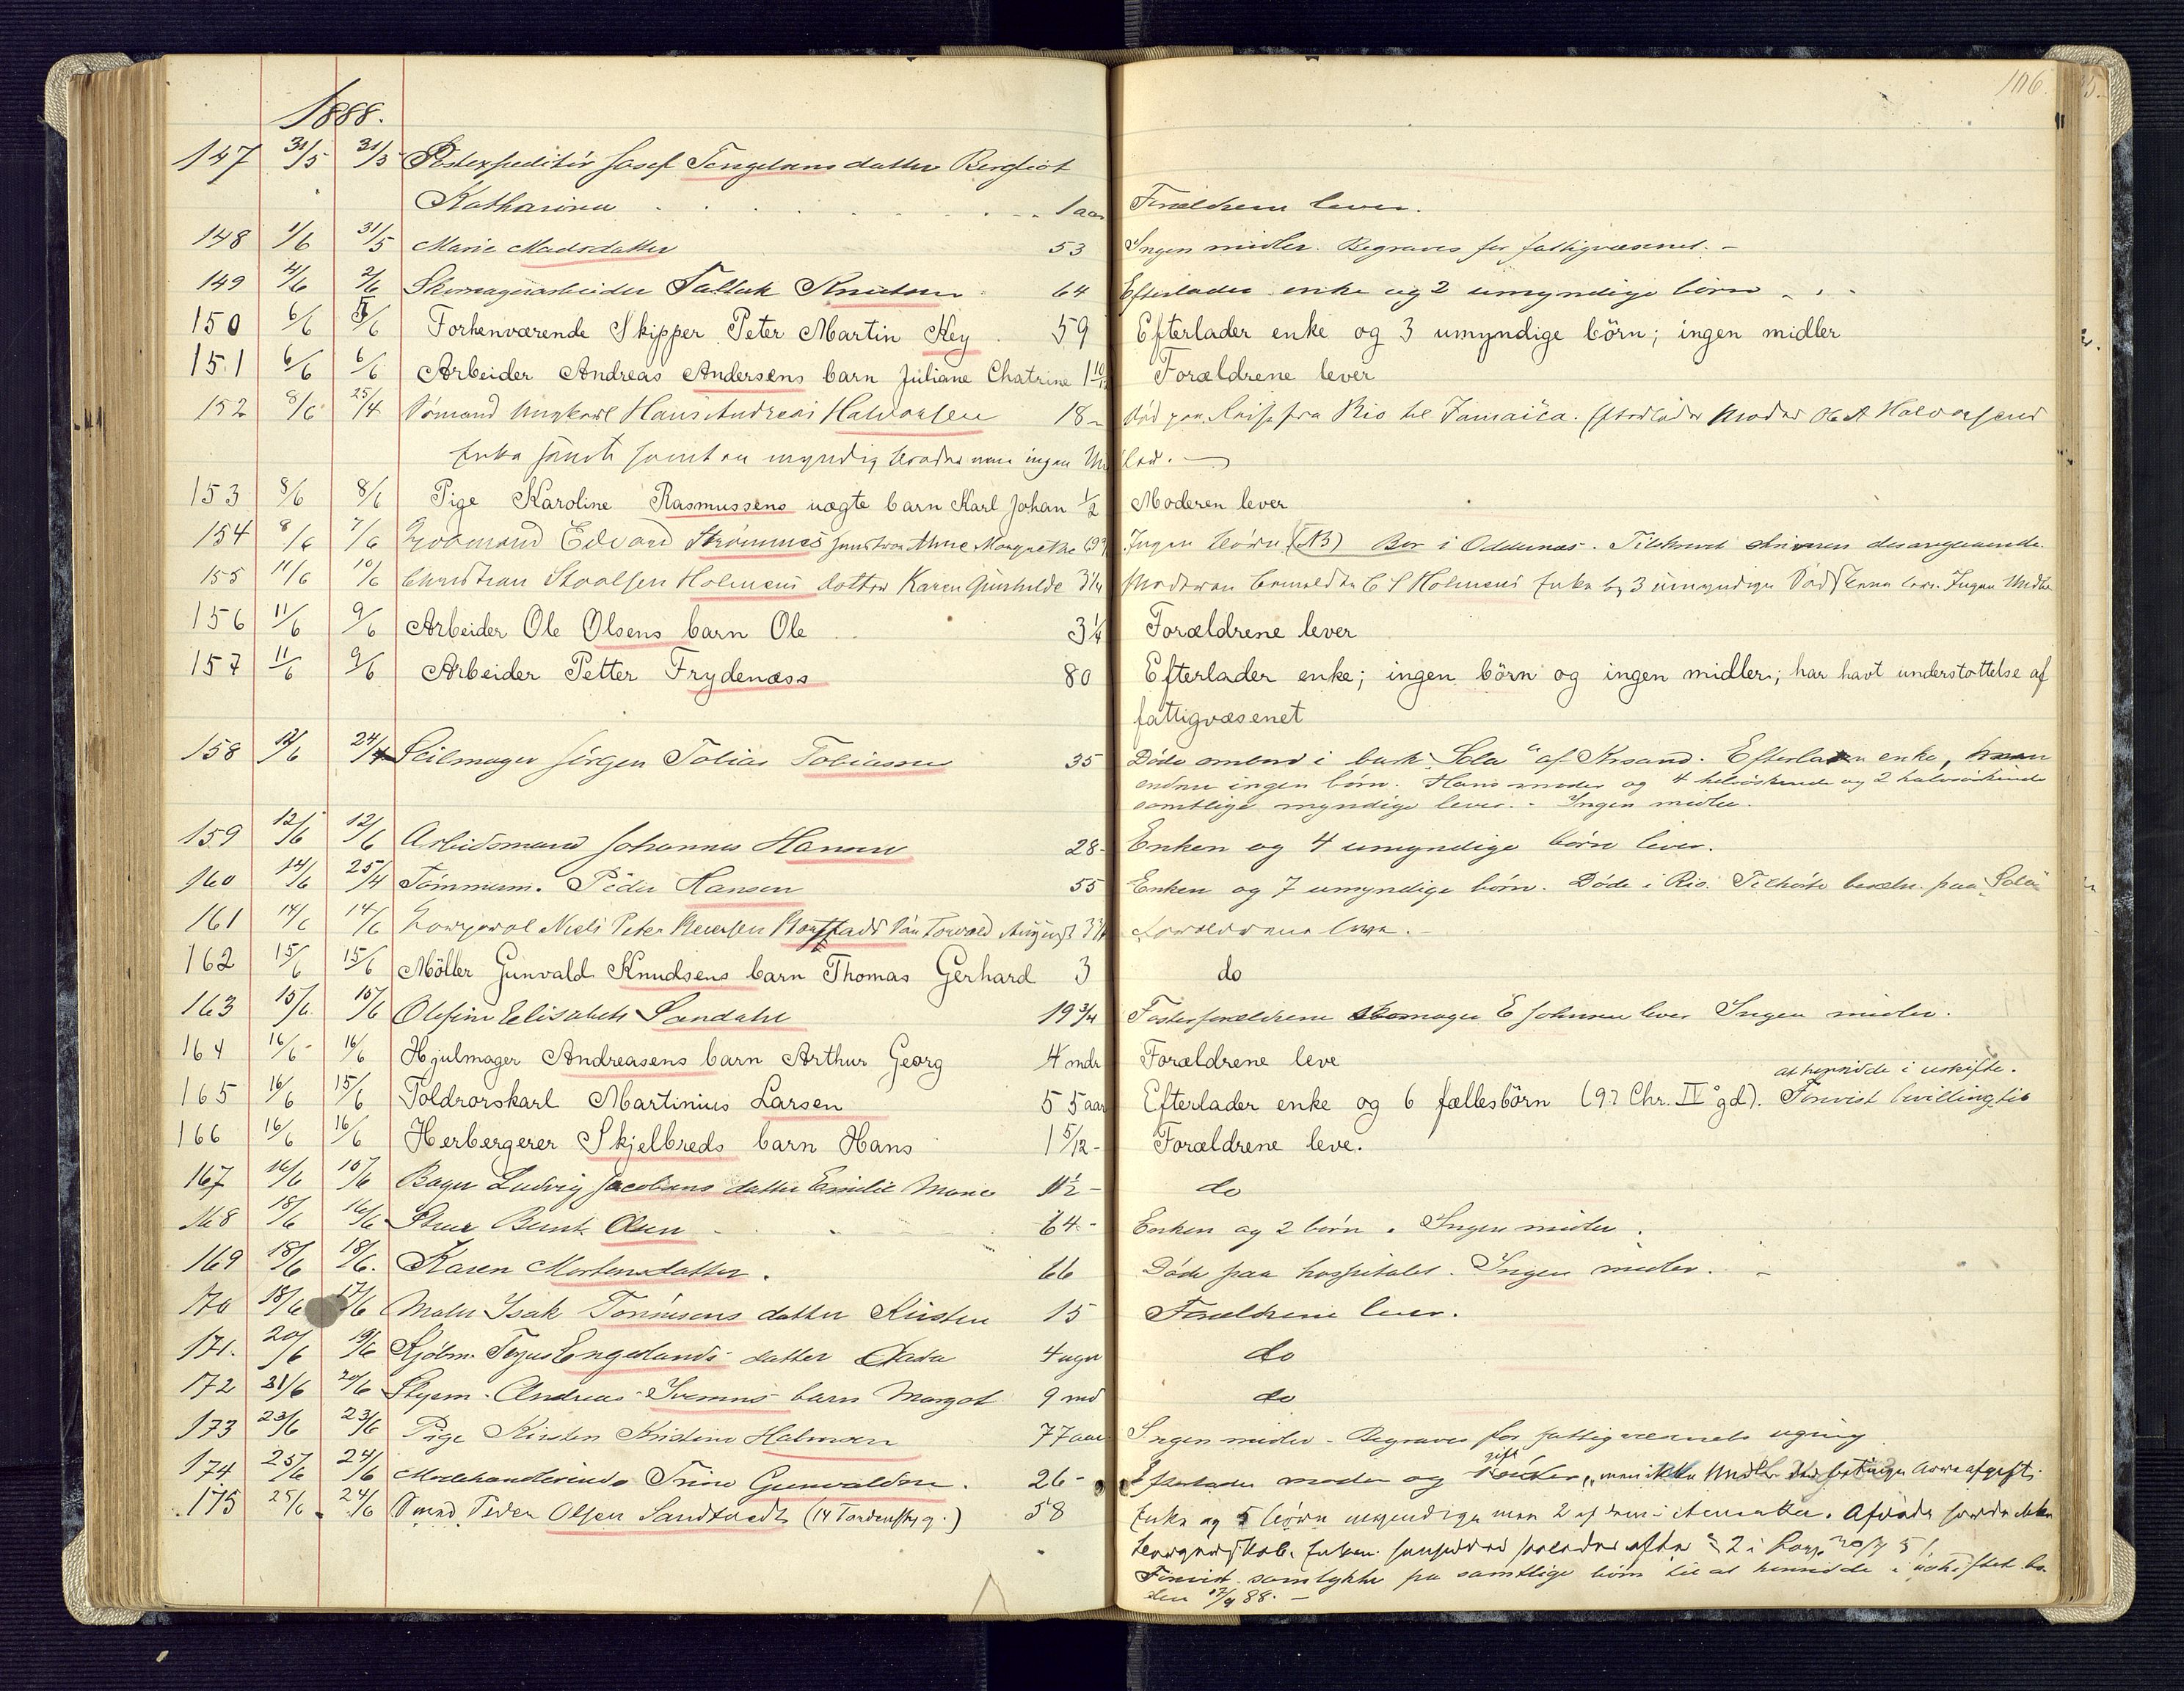 106.
1888.
147 31/5 31/5 Postexpeditör Josef Tengelsens datter Bergliot
Katharina 1 aar Forældrene lever.
148 1/6 31/5 Marie Madsdatter 53 Ingen midler. Begraves for fattigvæsenet. -
149 4/6 2/6 Skomagerarbeider Tallak Knutsen 64 Efterlader enke og 2 umyndige börn
150 6/6 5/6 Forhenværende Skipper Peter Martin Key 59 Efterlader enke og 3 umyndige börn; ingen midler
151 6/6 6/6 Arbeider Andreas Andersens barn Juliane Chatrine 1 10/12 Forældrene lever
152 8/6 25/4 Sömand Ungkarl Hans Andreas Halvorsen 18 - död paa Reise fra Rio til Jamaica. Efterlader Moder O A Halvorsens
Enke samt en myndig Broder men ingen Midler. -
153 8/6 8/6 Pige Karoline Rasmussens uægte barn Karl Johan 1/2 Moderen lever
154 8/6 7/6 Edvard Strömnes Anne Margrethe Ingen Börn (NB) Bor i Oddernes. Tilskrevet desangaaende.
155 11/6 10/6 Christian Holmens datter Karen Gunhilde 3 1/4 Moderen C S Holmens Enke og 3 umyndige lever. Ingen Midler
156 11/6 9/6 Arbeider Ole Olsens barn Ole 3 1/4 Forældrene lever
157 11/6 9/6 Arbeider Petter Frydenæss 80 Efterlader enke; ingen börn og ingen midler; har havt understøttelse af
fattigvæsenet
158 12/6 24/4 Seilmager Jörgen Tobias Tobiassen 35 Döde ombord i bark "Sola" af Krsand. Efterlader enke,
endnu ingen börn. Hans moder og 4 helsöskende og 2 halvsöskende
samtlige myndige lever. - Ingen midler.
159 12/6 12/6 Arbeidsmand Johannes Hansen 28 - Enken og 4 umyndige börn lever.
160 14/6 25/4 Tömmerm. Peder Hansen 55 Enken og 7 umyndige börn. Döde i Rio. Tilhörte besætn. paa "Sola"
161 14/6 14/6 Niels Peter Sön Torvald August Forældrene lever. -
162 15/6 15/6 Möller Gunvald Knudsens barn Thomas Gerhard 3 do
163 15/6 15/6 Olefine Elisabeth Sandahl 19 3/4 Fosterforældrene skomager E Johnsen lever Ingen midler.
164 16/6 16/6 Hjulmager Andreasens barn Arthur Georg 4 mdr Forældrene leve
at hensidde i uskifte.
165 16/6 15/6 Toldrorskarl Martinius Larsen 55 aar Efterlader enke og 6 fællesbörn (97 Chr. IV° gd). Forevist bevilling til
166 16/6 16/6 Herbergerer Skjelbreds barn Hans 1 5/12 - Forældrene leve.
167 16/6 15/6 Bager Ludvig Jacobsens datter Emilie Marie 11 1/2 - do
168 18/6 16/6 Stuer Bernt Olsen 64 - Enken og 2 börn. Ingen midler.
169 18/6 18/6. Karen Mortensdatter. 66 Döde paa hospitalet. Ingen midler. -
170 18/6 17/6 Maler Isak Tönnesens datter Kirsten 15 Forældrene lever.
171. 20/6 19/6 Kjölm. Terjus Engelands datter Dada 4 uger do
172 21/6 20/6 Styrm. Andreas Svennes barn Margot 9 md do
173 23/6 23/6 Pige Kirsten Kristine Halvorsen 77 aar Ingen midler - Begraves for fattigvæsenets regning
174 25/6 24/6 Modehandlerinde Trine Gunvaldsen. 26 - Efterlader moder og gift men ikke Midler
175 25/6 24/6 Smed Peder Olsen Sandtvedt (14 Tordenskj. g.) 58 Enke og 5 börn umyndige men 2 af dem i Amerika.
Forevist samtykke fra samtlige börn til at hensidde i uskiftet bo
den 17/9 88. -